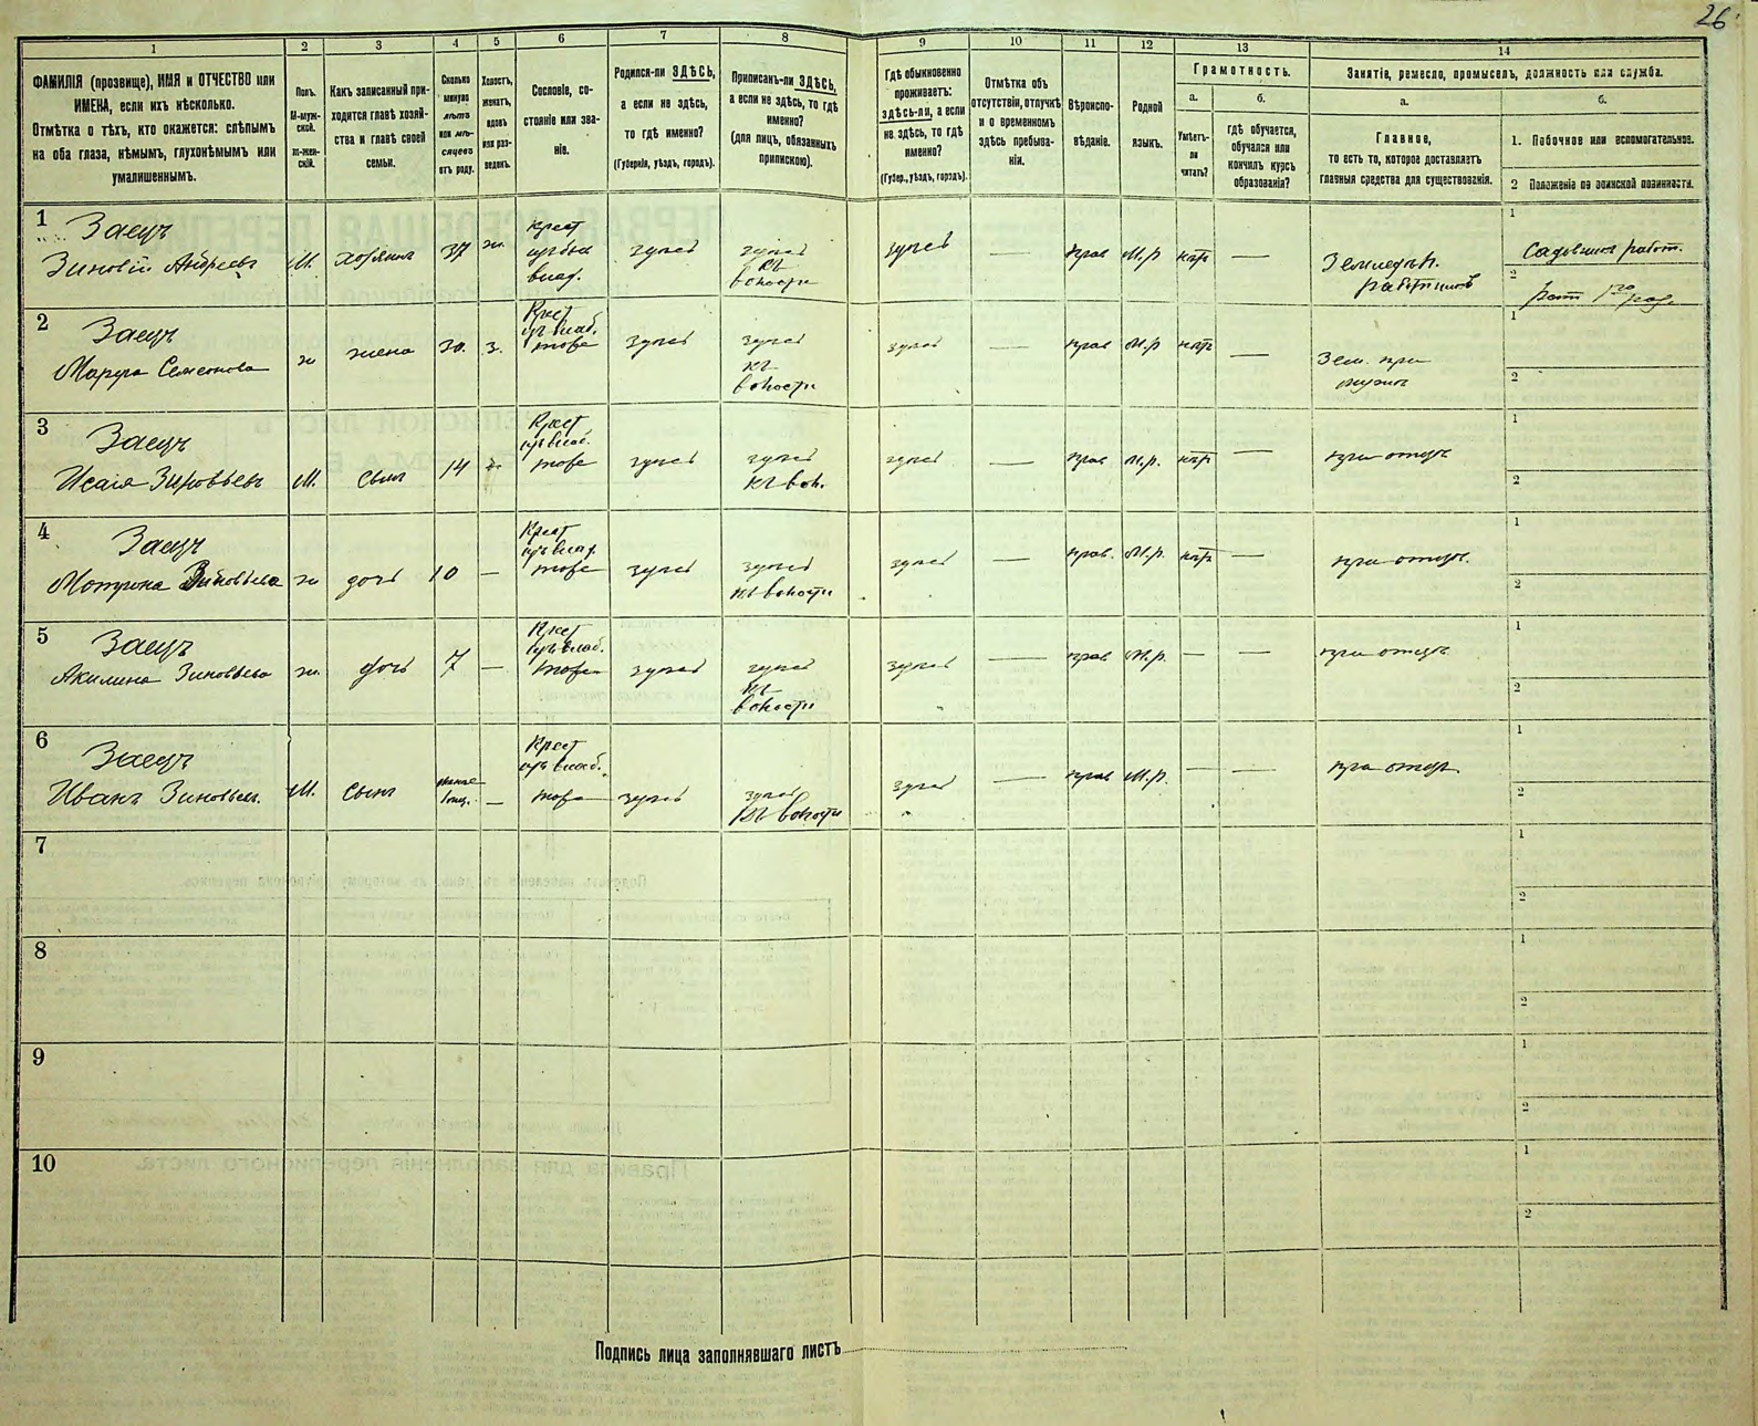 26.
1
2
3
4
5
6
7
8
9
10
11
12
13
14
ФАМИЛІЯ (прозвище), ИМЯ и ОТЧЕСТВО или
ИМЕНА, если ихъ нѣсколько.
Отмѣтка о тѣхъ, кто окажется: слѣпымъ
на оба глаза, нѣмымъ, глухонѣмымъ или
умалишеннымъ.
Полъ.
М-муж-
ской.
ж-жен-
скій.
Какъ записанный при-
ходится главѣ хозяй-
ства и главѣ своей
семьи.
Сколько
минуло
лѣтъ
или мѣ-
сяцевъ
отъ роду.
Холостъ,
женатъ,
вдовъ
или раз-
веденъ.
Сословіе, со-
стояніе или зва-
ніе.
Родился-ли ЗДѢСЬ,
а если не здѣсь,
то гдѣ именно?
(Губернія, уѣздъ, городъ).
Приписанъ-ли ЗДѢСЬ,
а если не здѣсь, то гдѣ
именно?
(для лицъ, обязанныхъ
припискою).
Гдѣ обыкновенно
проживаетъ:
здѣсь-ли, а если
не здѣсь, то гдѣ
именно?
(Губер., уѣздъ, городъ).
Отмѣтка объ
отсутствіи, отлучкѣ
и о временномъ
здѣсь пребыва-
ніи.
Вѣроиспо-
вѣданіе.
Родной
языкъ.
Грамотность.
а.
Умѣетъ-
ли
читать?
б.
гдѣ обучается,
обучался или
кончилъ курсъ
образованія?
Занятіе, ремесло, промыселъ, должность или служба.
а.
Главное,
то есть то, которое доставляетъ
главныя средства для существованія.
б.
1. Побочное или вспомогательное.
2 Положеніе по воинской повинности.
1
Заецъ
Зиновій Андреевъ
М.
хозяинъ
37
ж.
Крест
здесь
здесь
здесь
—
прав
М.р
—
Земледѣл.
работникъ
1
работ.
2
2
Заецъ
Марфа Семенова
ж
жена
30.
з.
Крест
тоже
здесь
здесь
здесь
—
прав
М.р
—
Зем. при
мужѣ
1
2
3
Заецъ
Исаія Зиновьевъ
М.
сынъ
14
Крест
тоже
здесь
здесь
здесь
—
прав
М.р.
—
при отцѣ
1
2
4
Заецъ
Мотрона Зиновьева
ж
дочь
10
—
Крест
тоже
здесь
здесь
здесь
—
прав.
М.р.
—
при отцѣ.
1
2
5
Заецъ
Акилина Зиновьева
ж.
дочь
7
—
Крест
тоже
здесь
здесь
здесь
—
прав
М.р.
—
—
при отцѣ
1
2
6
Заецъ
Иванъ Зиновьев.
М.
сынъ
—
Крест
тоже
здесь
здесь
здесь
—
прав
М.р.
—
—
при отцѣ
1
2
7
1
2
8
1
2
9
1
2
10
1
2
Подпись лица заполнявшаго листъ